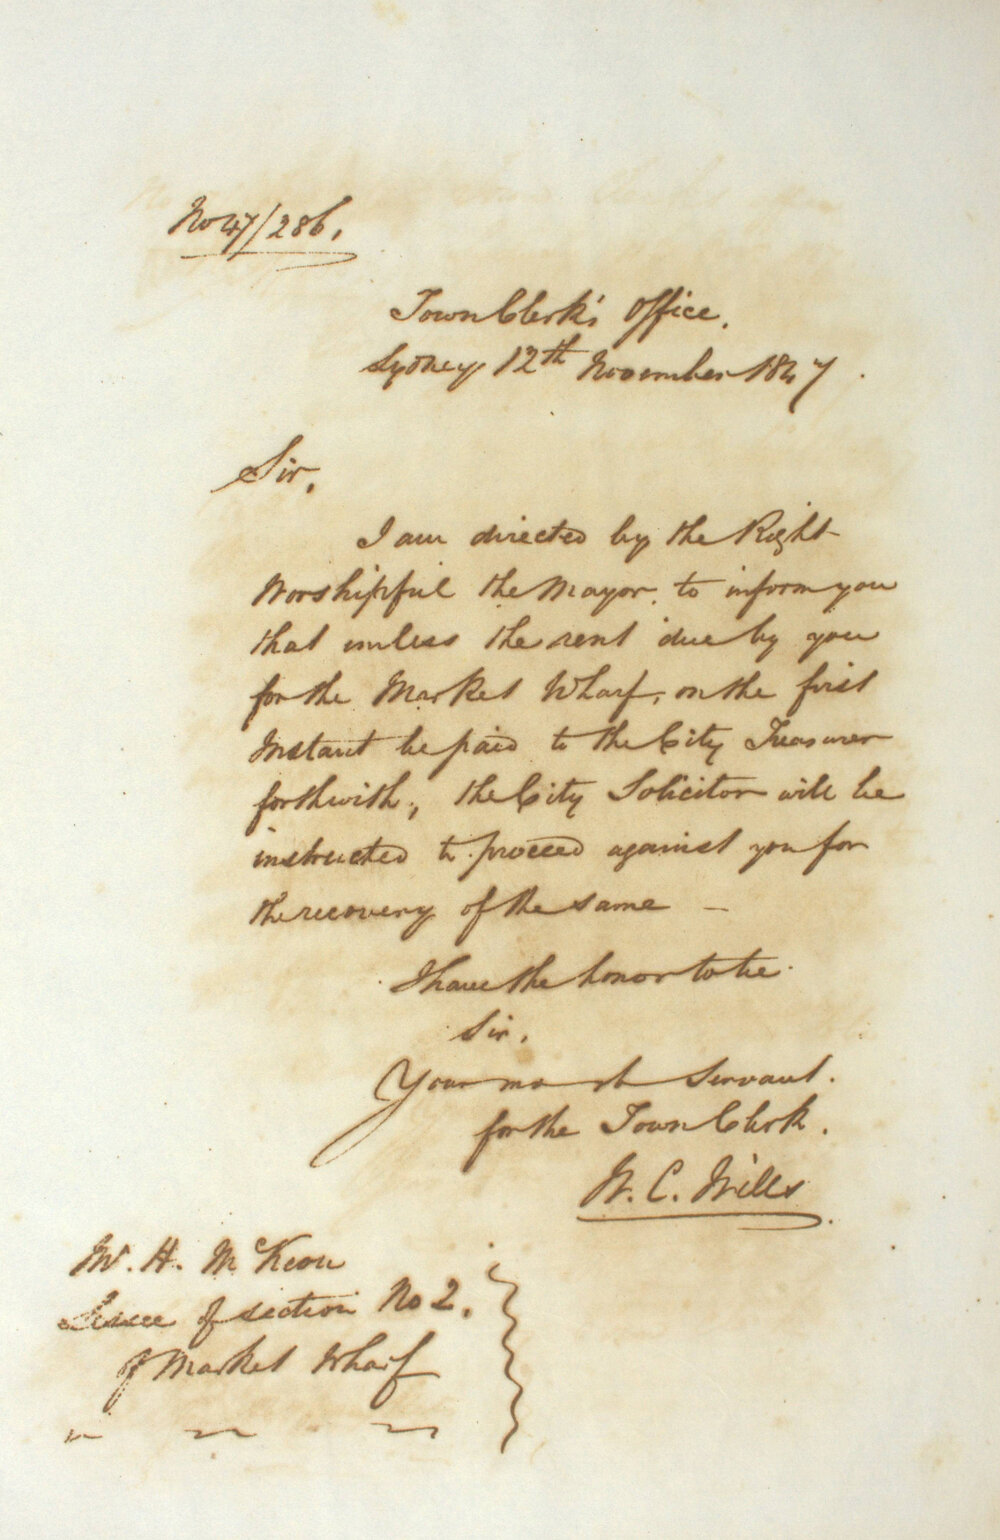 No 47/286.
Town Clerk's Office.
Sydney 12th November 1847.
Sir,
I am directed by the Right
Worshipful the Mayor, to inform you
that unless the rent due by you
for the Market Wharf, on the first
Instant be paid to the City Treasurer
forthwith, the City Solicitor will be
instructed to proceed against you for
the recovery of the same —
I have the honor to be
Sir,
Your most Servant.
for the Town Clerk.
W. C. Wills
Mr. H. McKeon
Lessee of section No 2.
of Market Wharf